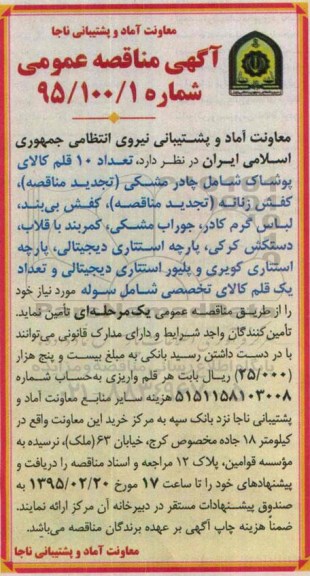 معاونت آماد و پشتیبانی ناجا
آگهی مناقصه عمومی
شماره ۹۵/۱۰۰/۱
معاونت آماد و پشتیبانی نیروی انتظامی جمهوری
اسلامی ایران در نظر دارد، تعداد ۱۰ قلم کالای
پوشاک شامل چادر مشکی (تجدید مناقصه)،
کفش زنانه (تجدید مناقصه)، کفش بی‌بند،
لباس گرم کادر، جوراب مشکی، کمربند با قلاب،
دستکش کرکی، پارچه استتاری دیجیتالی، پارچه
استتاری کویری و پلیور استتاری دیجیتالی و تعداد
یک قلم کالای تخصصی شامل سوله مورد نیاز خود
را از طریق مناقصه عمومی یک‌مرحله‌ای تأمین نماید.
تأمین‌کنندگان واجد شرایط و دارای مدارک قانونی می‌توانند
با در دست داشتن رسید بانکی به مبلغ بیست و پنج هزار
(۲۵/۰۰۰) ریال بابت هر قلم واریزی به‌حساب شماره
۵۱۵۱۱۵۸۱۰۳۰۰۸ هزینه سایر منابع معاونت آماد و
پشتیبانی ناجا نزد بانک سپه به مرکز خرید این معاونت واقع در
کیلومتر ۱۸ جاده مخصوص کرج، خیابان ۶۳ (ملک)، نرسیده به
مؤسسه قوامین، پلاک ۱۲ مراجعه و اسناد مناقصه را دریافت و
پیشنهادهای خود را تا ساعت ۱۷ مورخ ۱۳۹۵/۰۲/۲۰ به
صندوق پیشنهادات مستقر در دبیرخانه آن مرکز ارائه نمایند.
ضمناً هزینه چاپ آگهی بر عهده برندگان مناقصه می‌باشد.
معاونت آماد و پشتیبانی ناجا